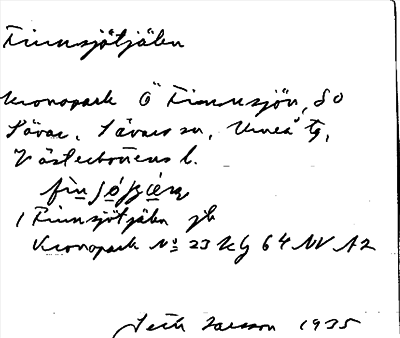 Finnsjötjälen
Kronopark Ö Finnsjön, SO
Sävar, Sävars sn, Umeå tg,
Västerbottens l.
1 Finnsjötjäln jb
Kronopark No 23 Kg 64 NV A2
Seth Larsson 1935